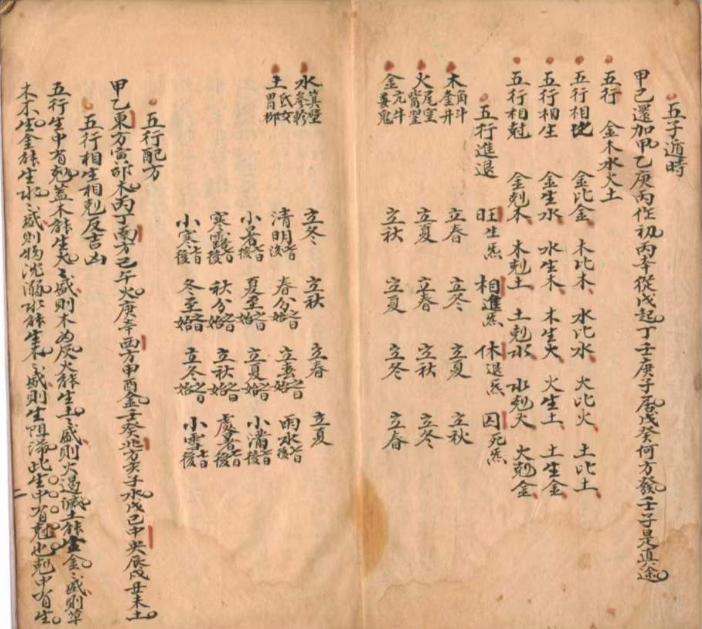 五子遁時
甲己還加甲乙庚丙作初丙辛從戊起丁壬庚子居戊癸何方發壬子是真途
五行 金木水火土
五行相比 金比金 木比木 水比水 火比火 土比土
五行相生 金生水 水生木 木生火 火生土 土生金
五行相尅 金剋木 木剋土 土剋水 水剋火 火剋金
五行進退 旺生炁 相進炁 休退炁 囚死炁
木 角斗奎井 立春 立冬 立夏 立秋
火 尾室觜翌 立夏 立春 立秋 立冬
金 亢牛婁鬼 立秋 立夏 立冬 立春
水 箕壁參軫 立冬 立秋 立春 立夏
土 氐女胃柳 清明後 春分 雨水後
小暑後 夏至 立夏 小滿後
寒露後 秋分 立秋 處暑後
小寒後 冬至 立冬 小雪後
五行配方
甲乙東方寅卯木丙丁南方巳午火庚辛西方申酉金壬癸北方亥子水戊己中央辰戌丑未土
五行相生相剋反吉凶
五行生中有剋蓋木能生火火盛則木為灰火能生土土盛則火遏滅土能生金金盛則草
木不生金能生水水盛則物沈溺水能生木木盛則生阻滯此生中有剋也剋中有生